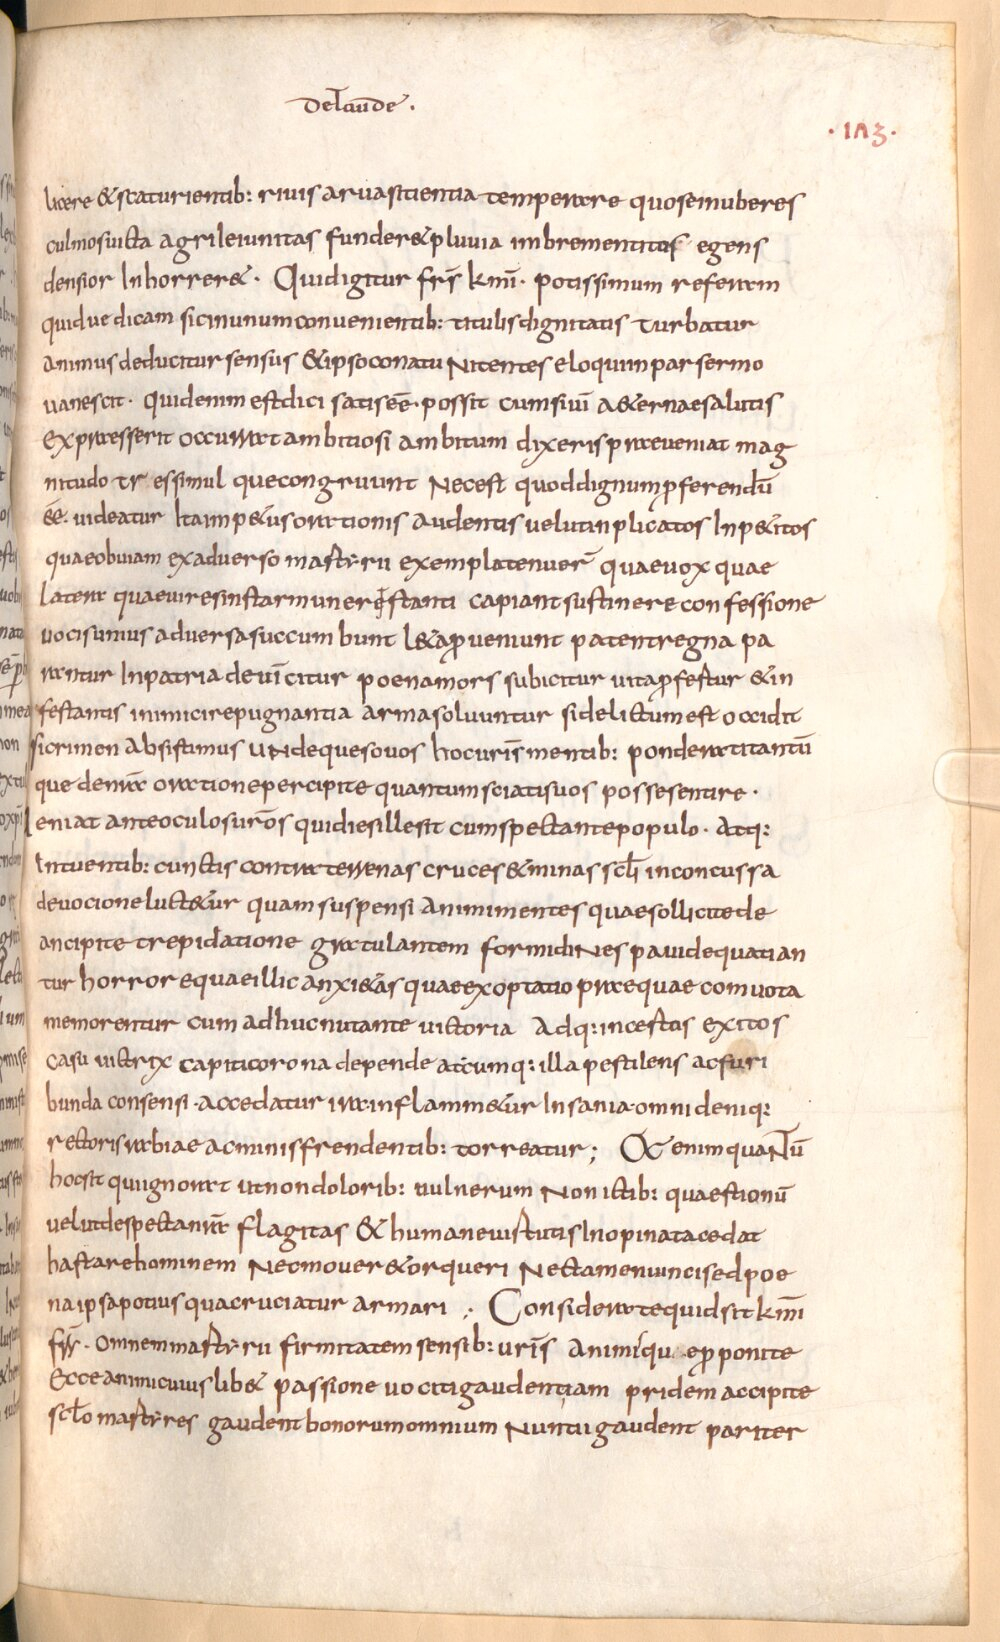 De laude.
·143·
licere & scaturientib: rivis arva sitientia temperare quos emuberes
culmos victa agri leiunitas funder& pluvia imbre mentitos egens
densior Inhorrer&. Quid igitur frs kmi. potissimum referam
quidve dicam sic inunum convenientib: titulis dignitatis turbatur
animus deducitur sensus & ipso conatu Nitentes eloqui inpar sermo
vanescit. quid enim est dici satis eē possit cum sivi a&ernae salutis
expraesserit occurrat ambitiosi ambitum dixeris praeveniat mag
nitudo tr essimul que congruunt Necest quod dignum proferendū
eē. videatur Ita imp&us orationis audentis velut inplicatos Inp&itos
quae obviam ex adverso martyrii exempla tenuer̄ quae vox quae
latera quae vires instar muneris stanti capiant sustinere confessione
vocis unius adversa succumbunt l&a proveniunt patent regna pa
rantur In patria devī citur poena mors subicitur vita profertur & in
festantis inimici repugnantia arma solvuntur si delictum est occidit
si crimen absistimus undeque so vos hoc uris mentib: ponderatit antū
que de nrā oratione percipite quantum sciatis vos posse sentire.
Veniat ante oculos uros qui dies ille sit cum spectante populo. Atq:
Intuentib: cunctis contra terrenas cruces & minas scli inconcussa
devocione luct&ur quam suspensi animi mentes quae sollicite de
ancipite trepidatione gratulantem formidines pavide quatian
tur horrores quae illic anxi&as quae exoptatio praequae com vota
memorentur cum adhuc nutante victoria Adq: incestas exitos
casu victrix capiti corona depende atcumq: illa pestilens ac furi
bunda consensi. accedatur ira inflamm&ur Insania. omni deniq:
rectoris rabiae ac minis frendentib: torreatur; Et enim quantū
hoc sit qui ignorat ut non dolorib: vulnerum Non ictib: quaestionū
velut despectanrā flagitas & humane virtutis Inopinata cedat
hastare hominem Nec mover& orqueri Nec tamen iunci sed poe
na ipsa potius qua cruciatur armari; Considerate quid sit kmi
frr. omnem martyrii firmitatem sensib: uris Animi qu e proponite
Ecce animi cuius lib& passione vociti gaudent iam pridem accipite
sclo martyres gaudent bonorum omnium Nuntii gaudent pariter